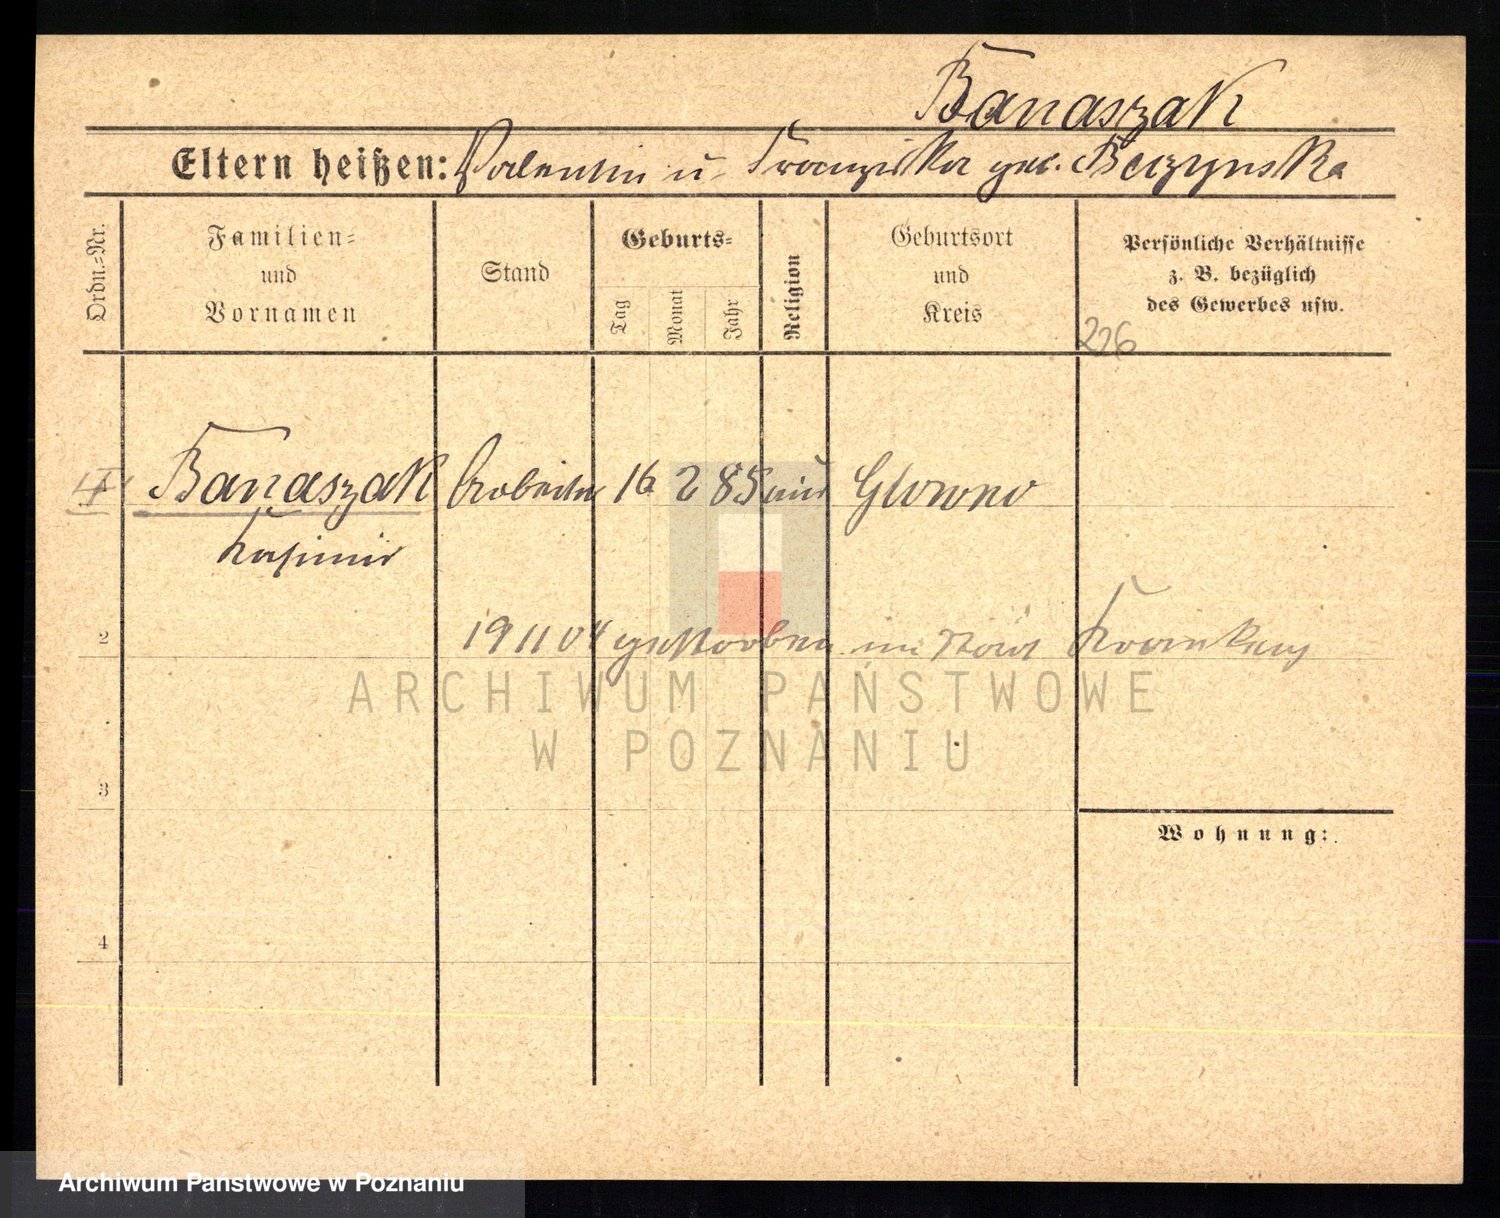 Banaszak
Eltern heißen: Valentin u. Franziska geb. Beczynska
Ordn.-Nr.
Familien- und Vornamen
Stand
Geburts-
Tag
Monat
Jahr
Religion
Geburtsort und Kreis
Persönliche Verhältnisse
z. B. bezüglich
des Gewerbes usw.
226
1 Banaszak Arbeiter 16 2 85 Glowno
Kasimir
2 19 11 04 gestorben im Stadt Krankenh
3
Wohnung:
4
ARCHIWUM PAŃSTWOWE
W POZNANIU
Archiwum Państwowe w Poznaniu